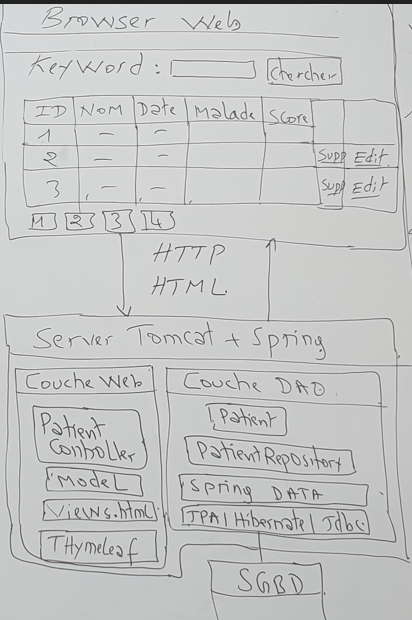 Browser Web
Keyword : Chercher
ID NOM Date Malade Score
1 — —
2 — — Supp Edit
3 — — Supp Edit
1 2 3 4
HTTP
HTML
Server Tomcat + Spring
Couche Web
Patient
Controller
Model
Views.html
THymeleaf
Couche DAO
Patient
PatientRepository
Spring DATA
JPA | Hibernate | Jdbc
SGBD